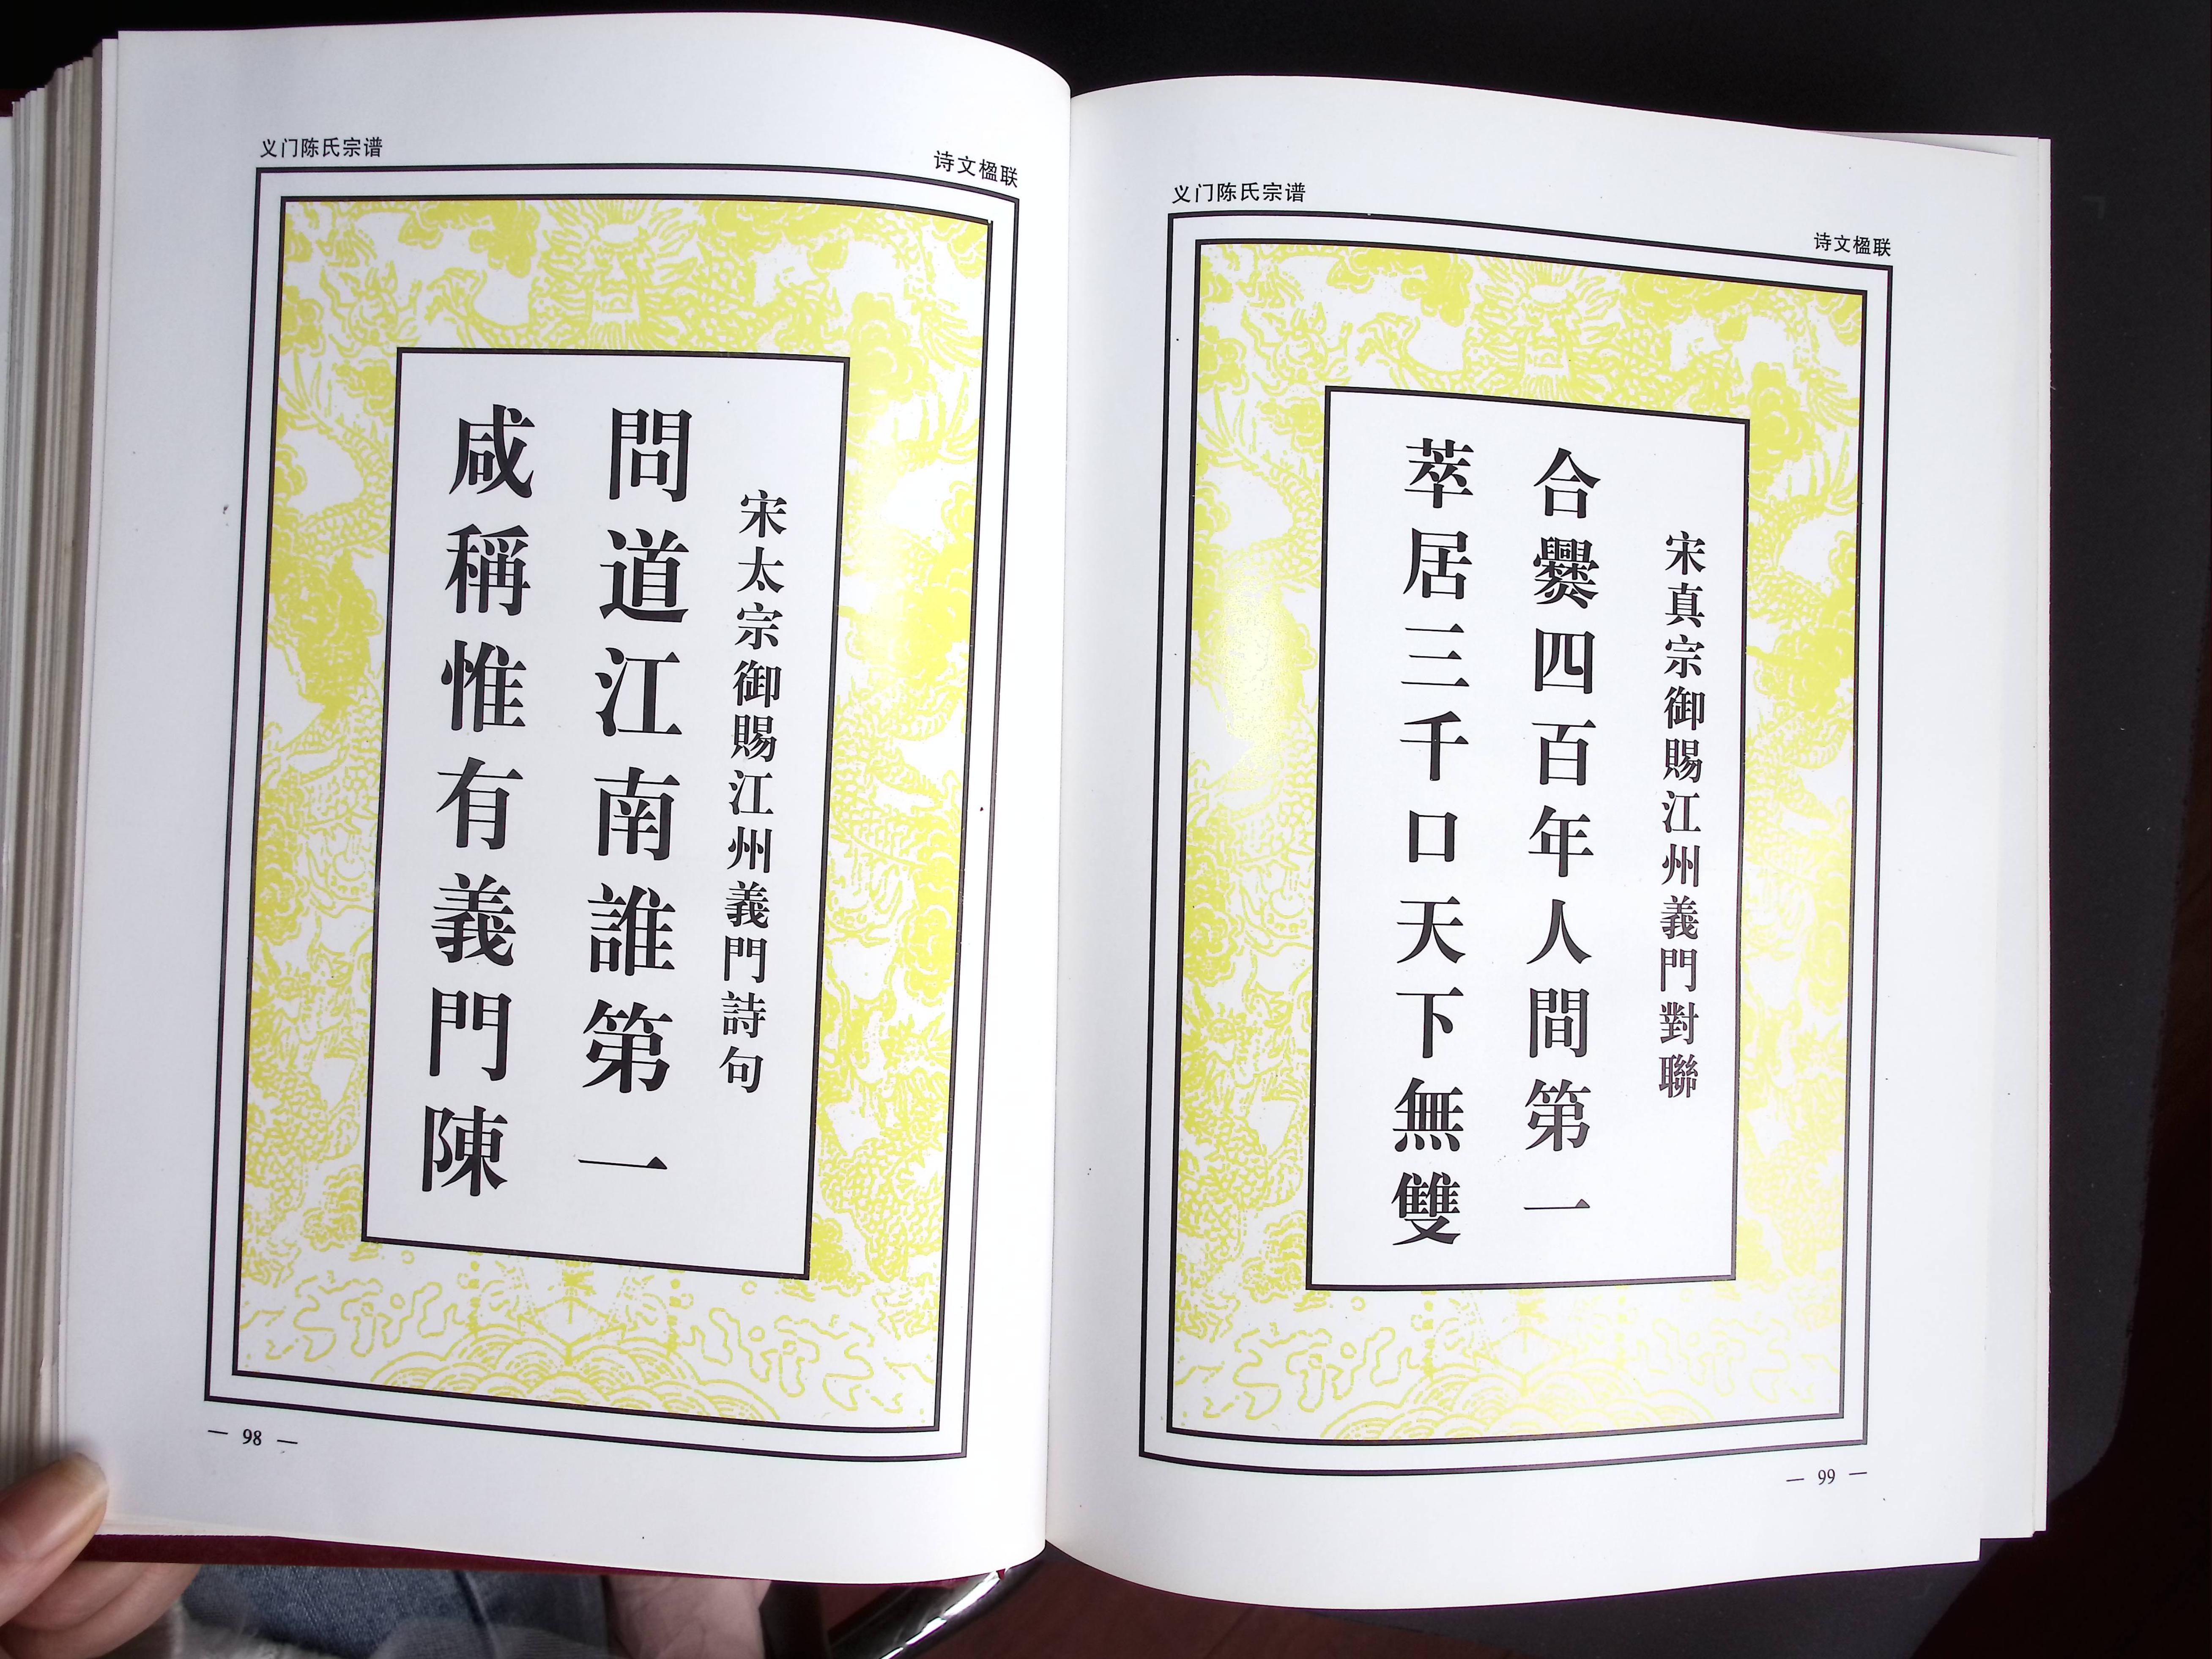 义门陈氏宗谱
诗文楹联
宋太宗御賜江州義門詩句
問道江南誰第一
咸稱惟有義門陳
— 98 —
义门陈氏宗谱
诗文楹联
宋真宗御賜江州義門對聯
合爨四百年人間第一
萃居三千口天下無雙
— 99 —